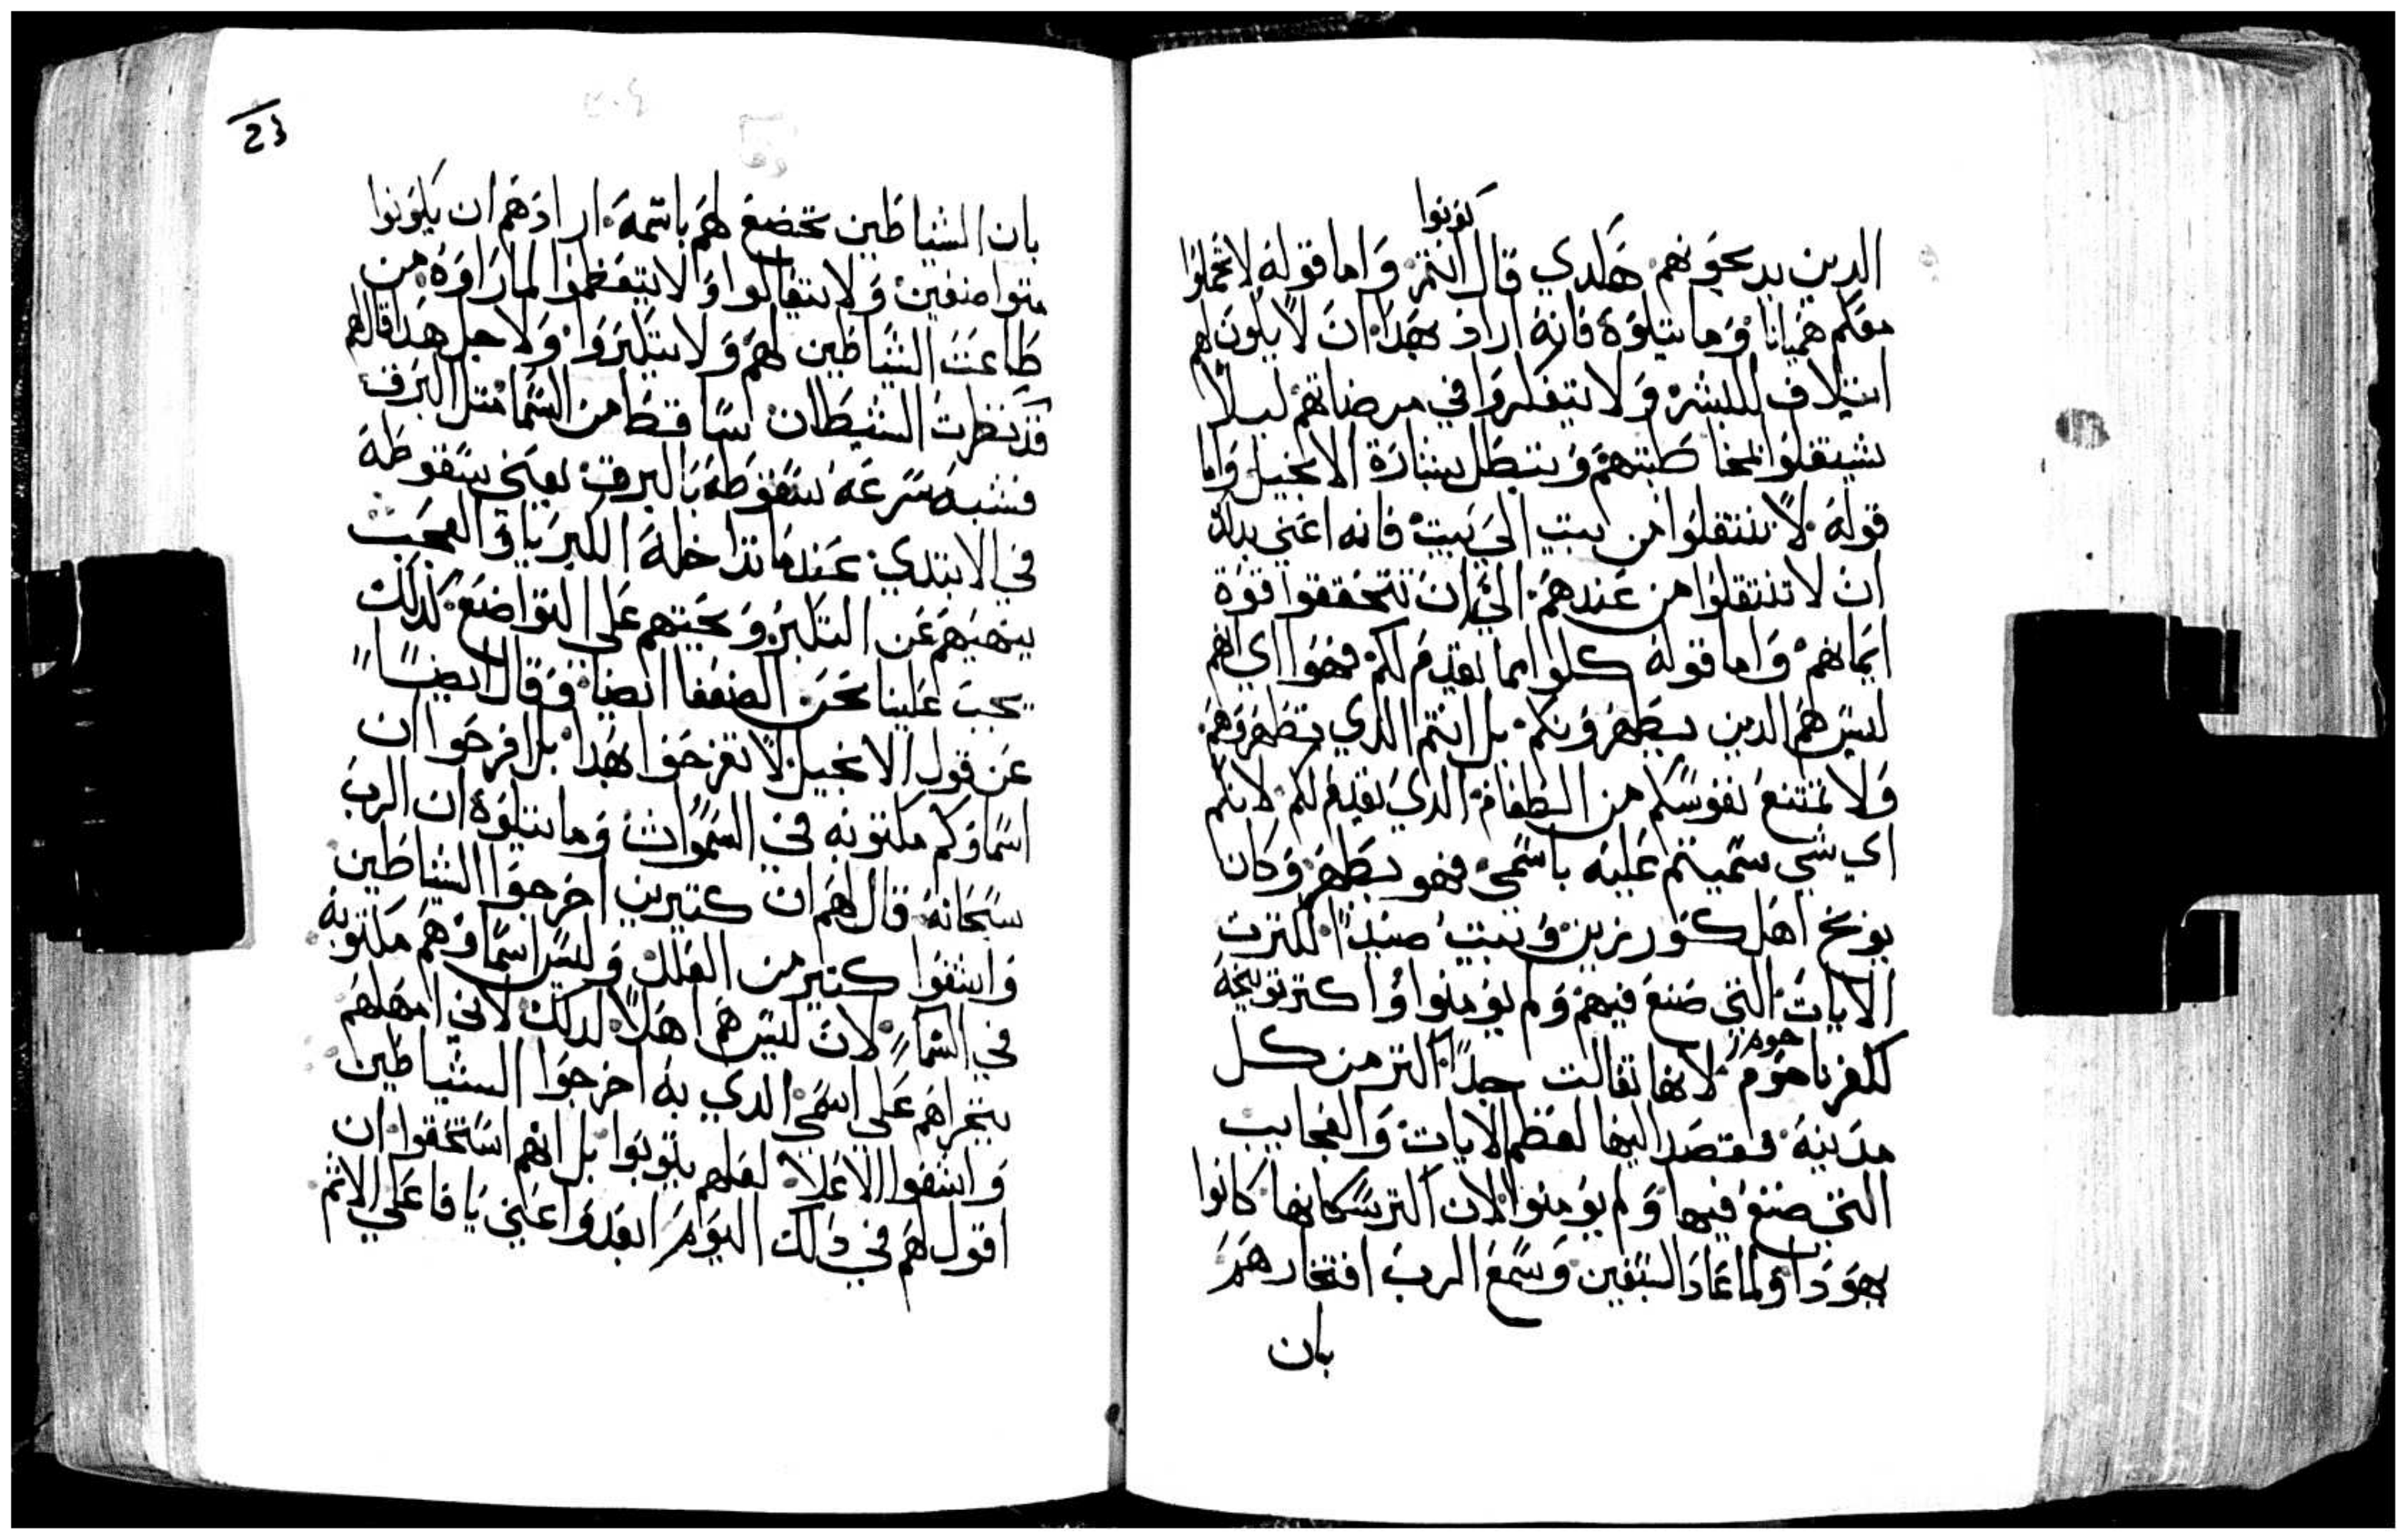 كونوا
الدين يدبحونهم هكدي قال انتم واما قوله لا تحملوا
معكم هميانا وما يتلوه فانه اراد بهدا ان لا يكون لهم
ايتلاف للبشر ولا يتفكروا في مرضاتهم ليلا
يشتغلوا بمخاطبتهم وتبطل بشارة الانجيل واما
قوله لا تنتقلوا من بيت الي بيت فانه اعني بدلك
ان لا تنتقلوا من عندهم الي ان تتحققوا قوة
ايمانهم واما قوله كلوا مما يقدم لكم فهوا اي انهم
ليس هم الدين يطهرونكم بل انتم الدي تطهروهم
ولا تمتنع نفوسكم من الطعام الدي يقدم لكم لانكم
اي شي سميتم عليه باسمي فهو يطهر وكان
يوبخ اهل كورزين وبيت صيدا لكترت
الايات التي صنع فيهم ولم يومنوا واكتر توبيخه
لكفرناحوم لانها تقالت جدا اكتر من كل
حوم
مدينة فقصد اليها لعظم الايات والعجايب
التي صنع فيها ولم يومنوا لان اكتر سكانها كانوا
يهودا ولما عاد السبعين وسمع الرب افتخارهم
بان
23
بان الشياطين تخضع لهم باسمه ارادهم ان يكونوا
متواضعين ولا يتقالوا ولا يتعظموا لما راوه من
طاعت الشياطين لهم ولا يتكبروا ولاجل هدا قال لهم
قد نظرت الشيطان ساقطا من السما متل البرق
فشبه سرعة سقوطه بالبرق يعني سقوطه
في الابتدي عندما تداخله الكبريا والعجب
ينهيهم عن التكبر ويحتهم على التواضع كدلك
يجب علينا نحن الضعفا ايضا وقال ايضا
عن قول الانجيل لا تفرحوا بهدا بل افرحوا ان
اسماوكم مكتوبه في السموات وما يتلوه ان الرب
سبحانه قال لهم ان كتيرين اخرجوا الشياطين
واشفوا كتير من العلل وليس اسماوهم مكتوبه
في السما لان ليس هم اهلا لدلك لاني امهلهم
بتجراهم على اسمي الدي به اخرجوا الشياطين
واشفوا الاعلا لعلهم يتوبوا بل انهم استحقوا ان
اقول لهم في دلك اليوم ابعدوا عني يا فاعلي الاتم